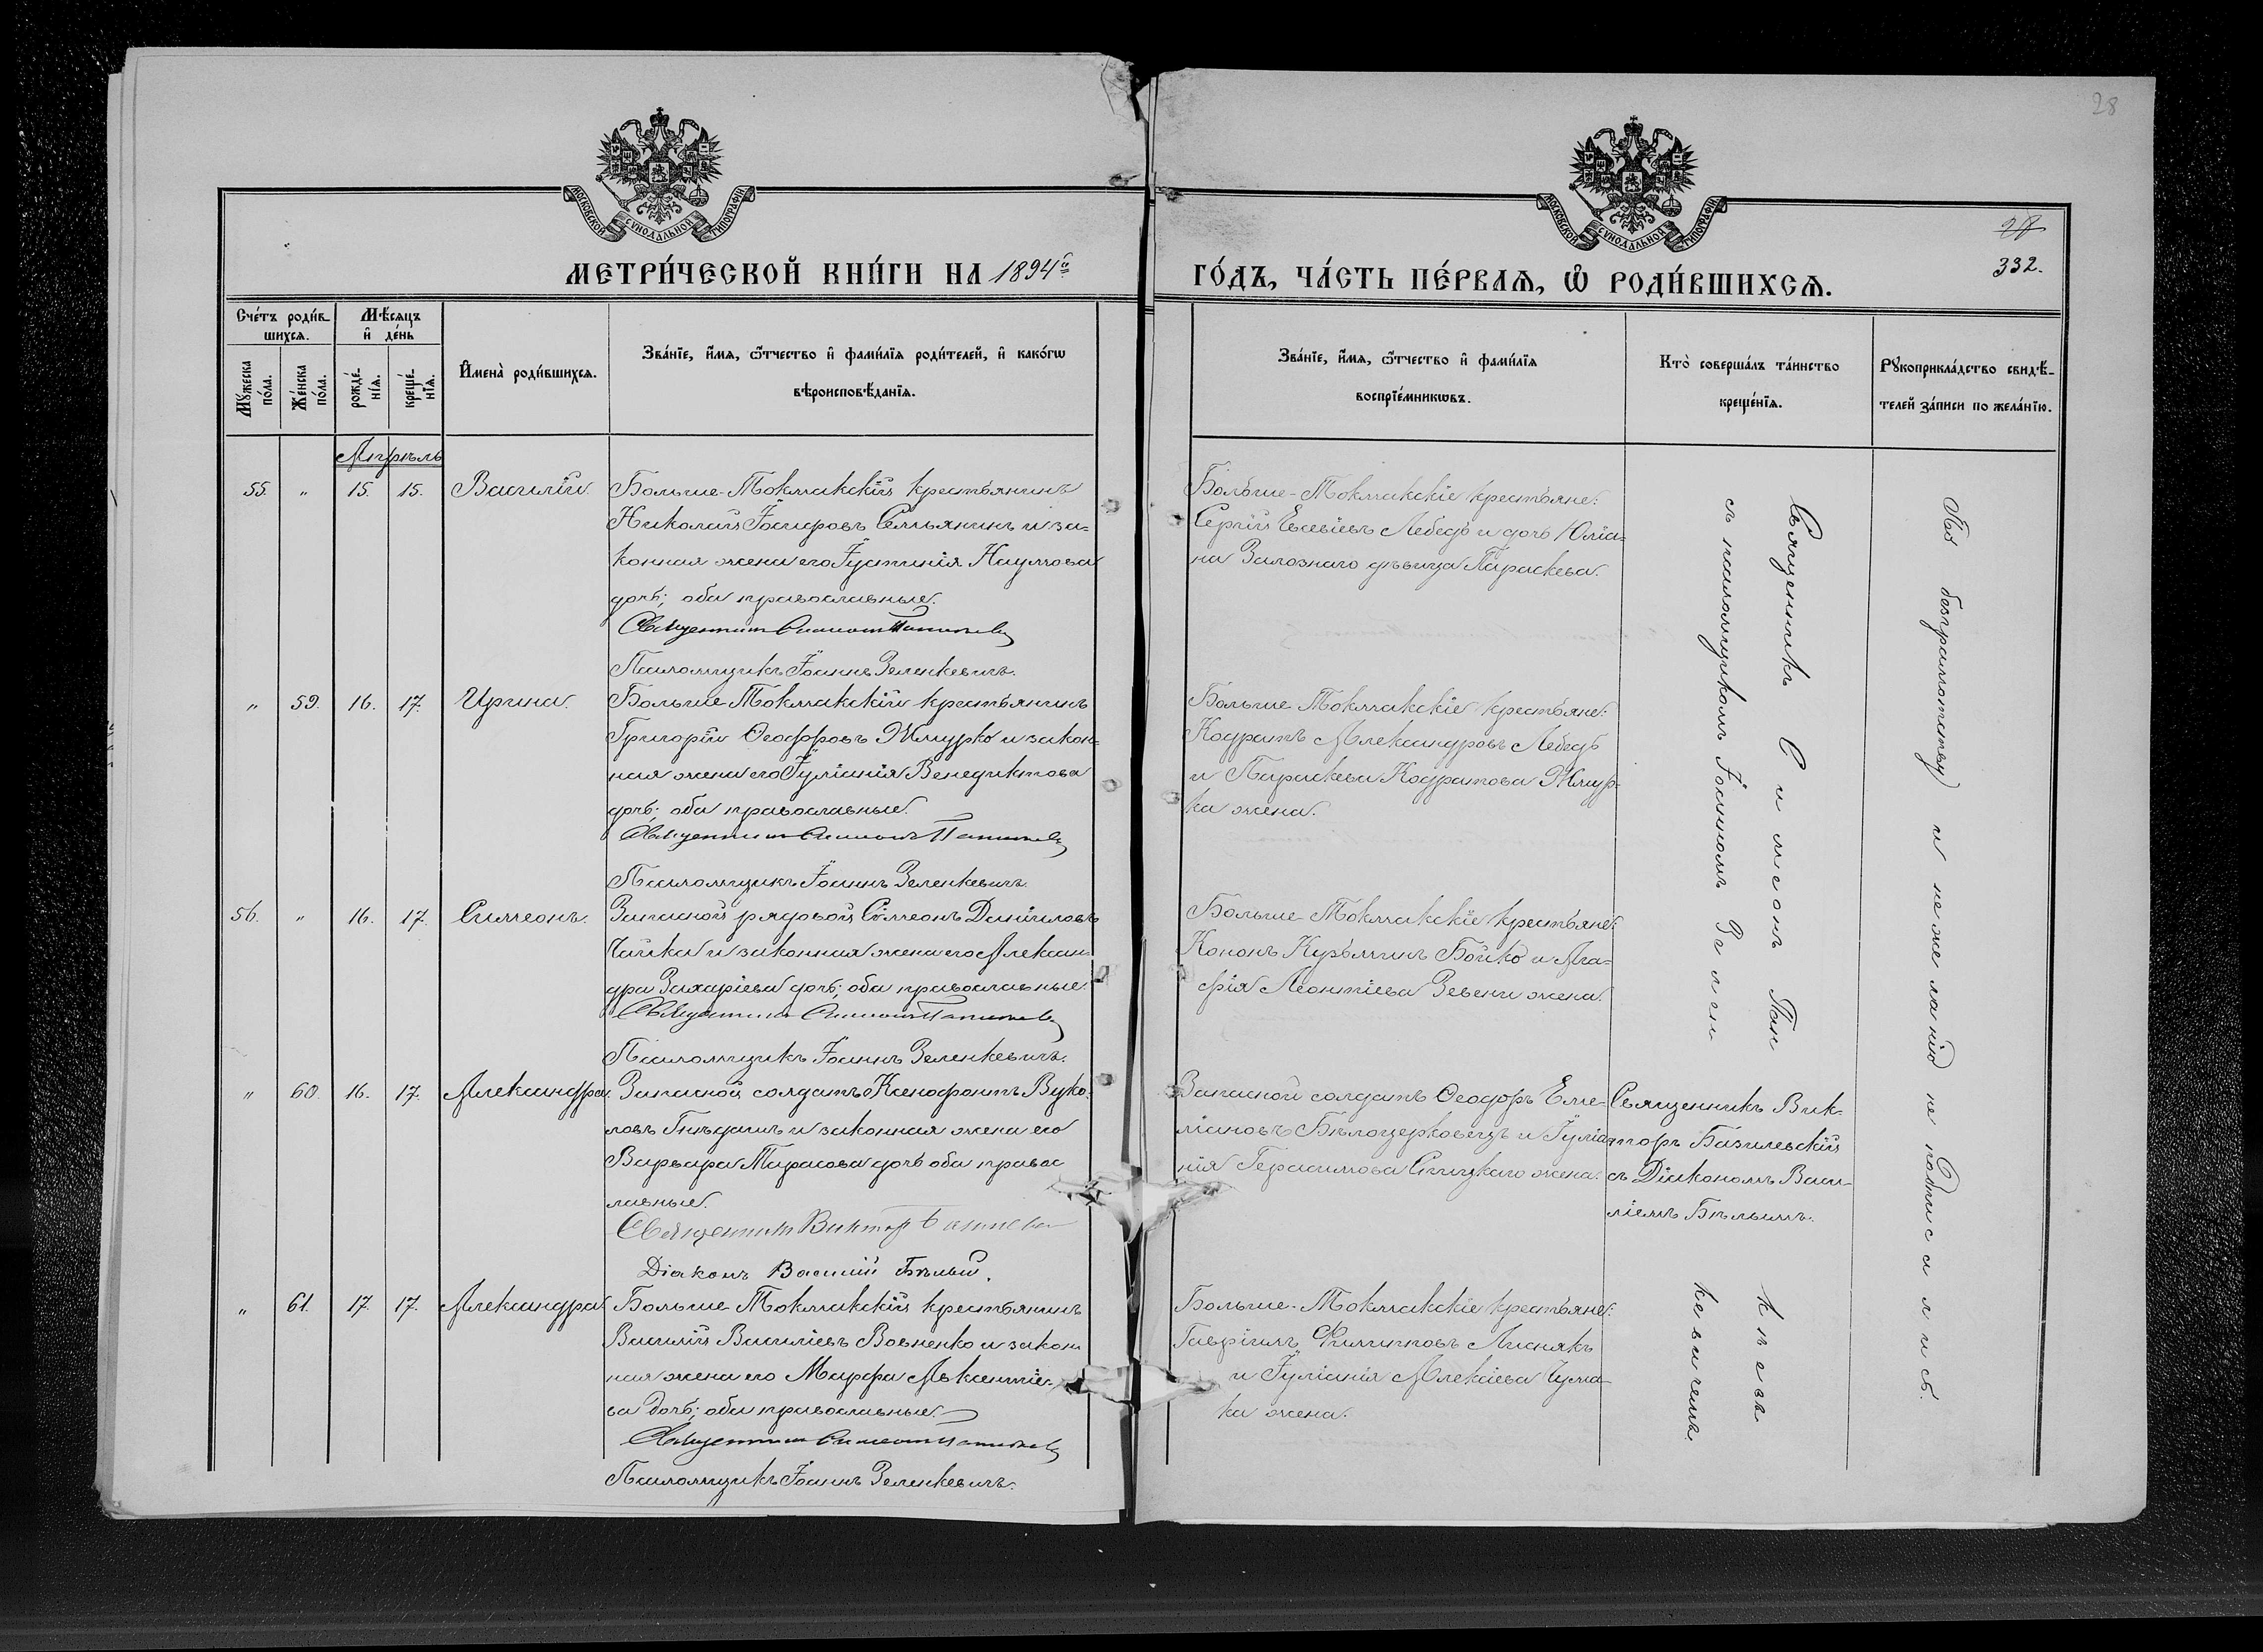 28
МОСКОВСКОЙ СѴНОДАЛЬНОЙ ТИПОГРАФІИ
МОСКОВСКОЙ СѴНОДАЛЬНОЙ ТИПОГРАФІИ
МЕТРИ́ЧЕСКОЙ КНИ́ГИ НА 1894й
ГО́ДЪ, ЧА́СТЬ ПЕ́РВАѦ, Ѡ҆ РОДИ́ВШИХСѦ.
332.
Сче́тъ роди́в-
шихсѧ.
Мꙋ́жеска по́ла.
Же́нска по́ла.
Мѣ́сѧцъ
и҆ де́нь
рожде́нїѧ.
креще́нїѧ.
И҆мена̀ роди́вшихсѧ.
Зва́нїе, и҆́мѧ, ѻ҆́тчество и҆ фами́лїѧ роди́телей, и҆ како́гѡ
вѣроисповѣ́данїѧ.
Зва́нїе, и҆́мѧ, ѻ҆́тчество и҆ фами́лїѧ
воспрїе́мникѡвъ.
Кто̀ соверша́лъ та́инство
креще́нїѧ.
Рꙋкоприкла́дство свидѣ́-
телей за́писи по жела́нїю.
Апрѣль
55. " 15. 15. Василій.
Больше-Токмакскій крестьянинъ
Николай Іосифовъ Семьянинъ и за-
конная жена его Іустинія Наумова
дочь; оба православные.
Священникъ Симеонъ
Псаломщикъ Іоаннъ Зеленкевичъ.
Больше-Токмакскіе крестьяне:
Сергій Евсевіевъ Лебедь и дочь Юліа-
на Залознаго дѣвица Параскева.
" 59. 16. 17. Ирина.
Больше-Токмакскій крестьянинъ
Григорій Ѳеодоровъ Жмурко и закон-
ная жена его Іуліанія Венедиктова
дочь; оба православные.
Священникъ Симеонъ
Псаломщикъ Іоаннъ Зеленкевичъ.
Больше-Токмакскіе крестьяне:
Кодратъ Александровъ Лебедь
и Параскева Кодратова Жмур-
ка жена.
56. " 16. 17. Симеонъ.
Запасной рядовой Симеонъ Даніиловъ
Чайка и законная жена его Алексан-
дра Захаріева дочь; оба православные.
Священникъ Симеонъ
Псаломщикъ Іоаннъ Зеленкевичъ.
Больше-Токмакскіе крестьяне:
Кононъ Кузьминъ Бойко и Ага-
фія Леонтіева Зевени жена.
" 60. 16. 17. Александра.
Запасной солдатъ Ксенофонтъ Вуко-
ловъ Гнѣдашъ и законная жена его
Варвара Тарасова дочь оба правос
лавные.
Священникъ Викторъ
Діаконъ Василій Бѣлый.
Запасной солдатъ Ѳеодоръ Еме-
ліановъ Бѣлоцерковецъ и Іуліа
нія Герасимова Спицкаго жена.
Священникъ Вик-
торъ Базилевскій
съ Діакономъ Васи-
ліемъ Бѣлымъ.
" 61. 17. 17. Александра
Больше-Токмакскій крестьянинъ
Василій Василіевъ Вовненко и закон
ная жена его Марфа Авксентіе-
ва дочь; оба православные.
Священникъ Симеонъ
Псаломщикъ Іоаннъ Зеленкевичъ.
Больше-Токмакскіе крестьяне:
Гавріилъ Филипповъ Лиснякъ
и Іуліанія Алексіева Чума-
ка жена.
Священникъ Симеонъ Пан
кѣевъ
съ псаломщикомъ Іоанномъ Зелен
кевичемъ.
По безграмотству и нежеланію не подписались.